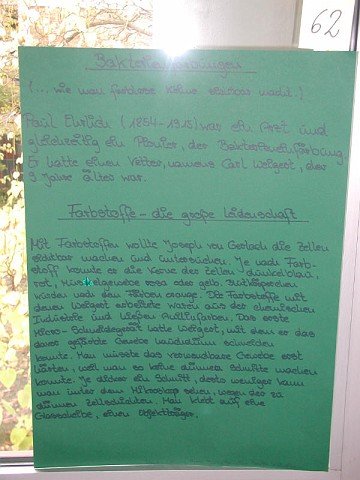 62
Bakterienfärbungen
(... wie man farblose Keime sichtbar macht.)
Paul Ehrlich (1854-1915) war ein Arzt und
gleichzeitig ein Pionier, der Bakterieneinfärbung.
Er hatte einen Vetter, namens Carl Weigert, der
9 Jahre älter war.
Farbstoffe - die große Leidenschaft
Mit Farbstoffen wollte Joseph von Gerlach die Zellen
sichtbar machen und untersuchen. Je nach Farb-
stoff konnte er die Kerne der Zellen - dunkelblau,
rot, Muskelgewebe rosa oder gelb. Blutkörperchen
wurden nach dem Färben orange. Die Farbstoffe mit
denen Weigert arbeitete waren aus der chemischen
Industrie und hießen Anilinfarben. Das erste
Micro-Schneidegerät hatte Weigert, mit dem er das
gefärbte Gewebe hauchdünn schneiden
konnte. Man musste das verwendbare Gewebe erst
härten, weil man so keine dünnen Schnitte machen
konnte. Je dicker ein Schnitt, desto weniger kann
man unter dem Mikroskop sehen, wegen der zu
dünnen Zellschichten. Man klebt auf eine
Glasscheibe, einen Objektträger.